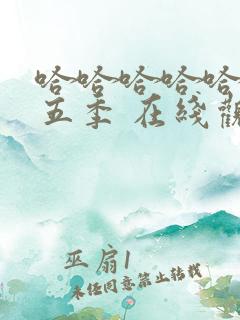 哈哈哈哈哈
五季 在綫觀
巫扇1
未经同意禁止转载